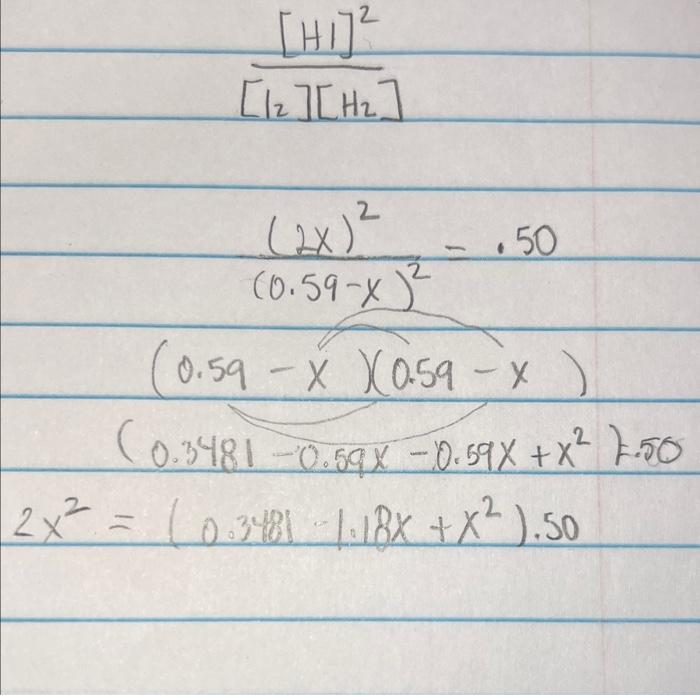 [HI]²
[I₂][H₂]
(2x)² = .50
(0.59-x)²
(0.59 - x)(0.59 - x)
(0.3481 - 0.59x - 0.59x + x²).50
2x² = (0.3481 - 1.18x + x²).50